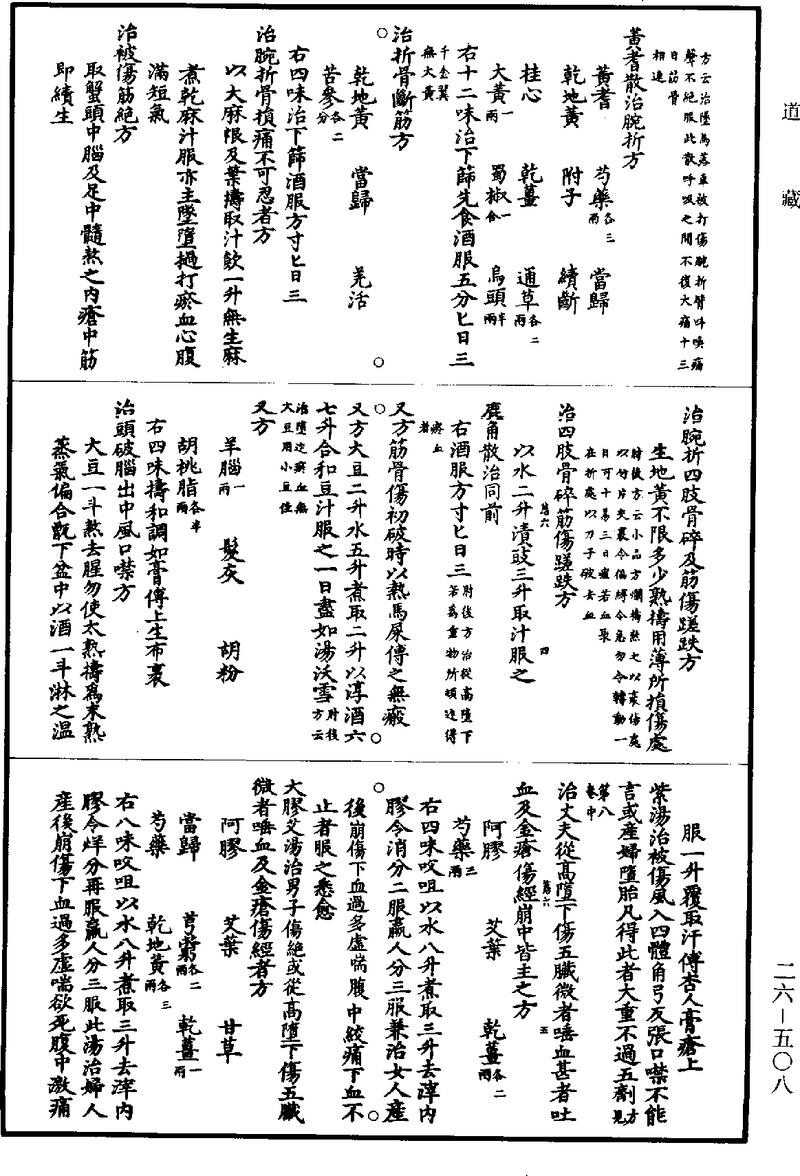 道藏
方云治墮馬落車被打傷腕折臂呌喚痛
聲不絕服此散呼吸之間不復大痛十三
日筋骨
相連
黃耆散治腕折方
黃耆 芍藥各三兩 當歸
乾地黃 附子 續斷
桂心 乾薑 通草各二兩
大黃一兩 蜀椒一合 烏頭半兩
右十二味治下篩先食酒服五分匕日三
千金翼
無大黃
治折骨斷筋方
乾地黃 當歸 羌活
苦參各二分
右四味治下篩酒服方寸匕日三
治腕折骨損痛不可忍者方
以大麻根及葉擣取汁飲一升無生麻
煮乾麻汁服亦主墜墮撾打瘀血心腹
滿短氣
治被傷筋絕方
取蟹頭中腦及足中髓熬之內瘡中筋
即續生
治腕折四肢骨碎及筋傷蹉跌方
生地黃不限多少熟擣用薄所損傷處
肘後方云小品方爛擣熬之以裹傷處
以竹片夾裹令徧縛令急勿令轉動一
日可十易三日瘥若血聚
在折處以刀子破去血
治四肢骨碎筋傷蹉跌方
以水二升漬豉三升取汁服之
第六 四
鹿角散治同前
右酒服方寸匕日三肘後方治從高墮下
若為重物所頓迮得
瘀血
者
又方筋骨傷初破時以熱馬屎傅之無瘢
又方大豆二升水五升煮取二升以淳酒六
七升合和豆汁服之一日盡如湯沃雪肘後
方云
治墮迮瘀血無
大豆用小豆佳
又方
羊腦一兩 髮灰 胡粉
胡桃脂各半兩
右四味擣和調如膏傅上生布裹
治頭破腦出中風口噤方
大豆一斗熬去腥勿使太熟擣為末熟
蒸氣徧合甑下盆中以酒一斗淋之溫
服一升覆取汗傅杏人膏瘡上
紫湯治被傷風入四體角弓反張口噤不能
言或產婦墮胎凡得此者大重不過五劑方見
第八
卷中
治丈夫從高墮下傷五臟微者唾血甚者吐
第六 五
血及金瘡傷經崩中皆主之方
阿膠 艾葉 乾薑各二兩
芍藥三兩
右四味㕮咀以水八升煮取三升去滓內
膠令消分二服羸人分三服兼治女人產
後崩傷下血過多虛喘腹中絞痛下血不
止者服之悉愈
大膠艾湯治男子傷絕或從高墮下傷五臟
微者唾血及金瘡傷經者方
阿膠 艾葉 甘草
當歸 芎藭各二兩 乾薑一兩
芍藥 乾地黃各三兩
右八味㕮咀以水八升煮取三升去滓內
膠令烊分再服羸人分三服此湯治婦人
產後崩傷下血過多虛喘欲死腹中激痛
二六—五〇八